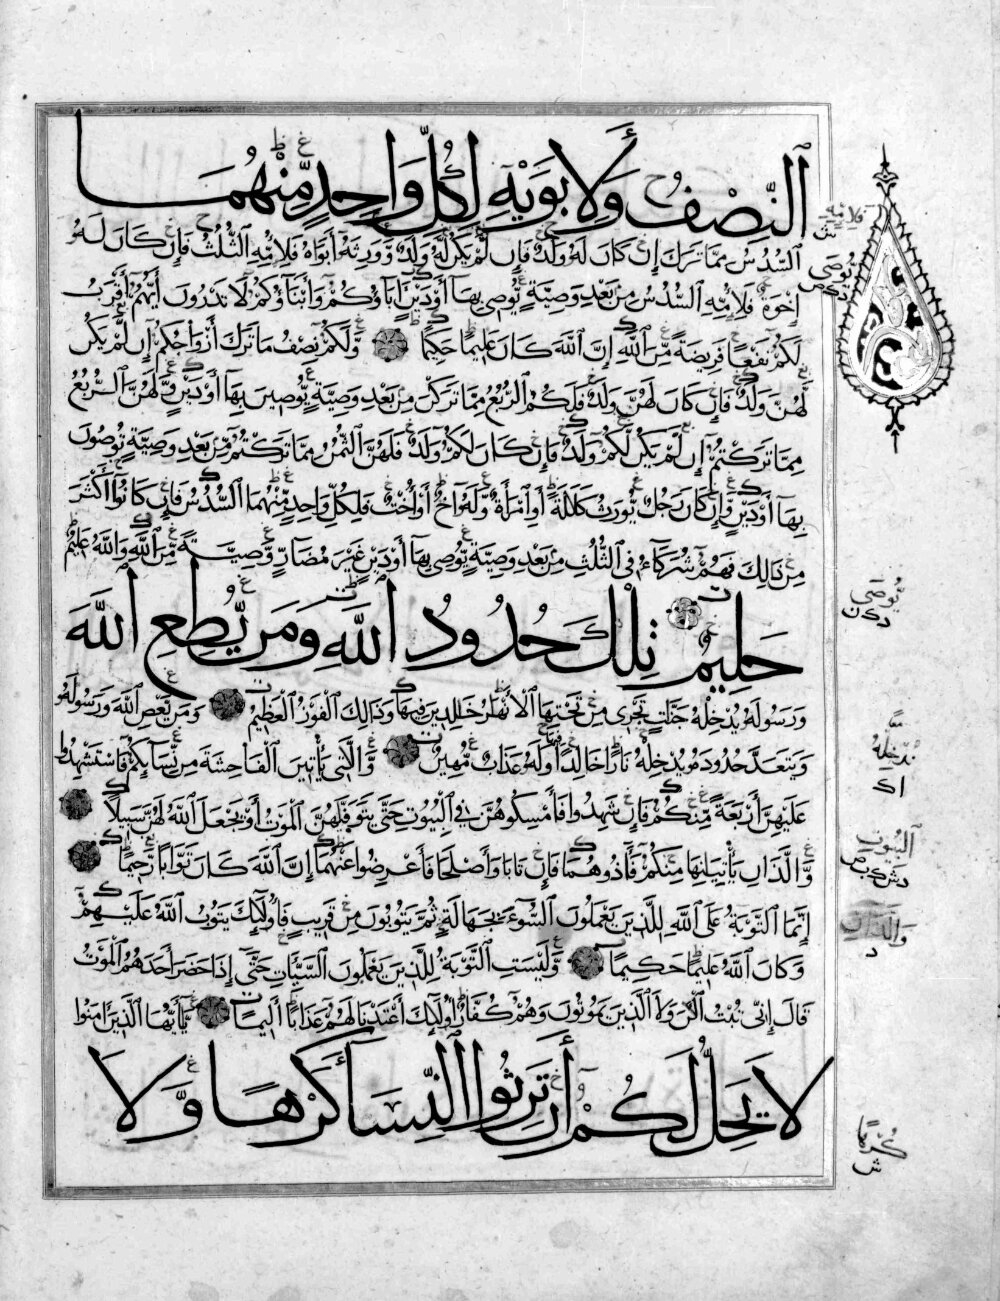 ٱلنِّصْفُ وَلِأَبَوَيْهِ لِكُلِّ وَاحِدٍ مِّنْهُمَا
ٱلسُّدُسُ مِمَّا تَرَكَ إِن كَانَ لَهُ وَلَدٌ فَإِن لَّمْ يَكُن لَّهُ وَلَدٌ وَّوَرِثَهُ أَبَوَاهُ فَلِأُمِّهِ ٱلثُّلُثُ فَإِن كَانَ لَهُ
إِخْوَةٌ فَلِأُمِّهِ ٱلسُّدُسُ مِن بَعْدِ وَصِيَّةٍ يُّوصِي بِهَا أَوْ دَيْنٍ آبَاؤُكُمْ وَأَبْنَاؤُكُمْ لَا تَدْرُونَ أَيُّهُمْ أَقْرَبُ
لَكُمْ نَفْعًا فَرِيضَةً مِّنَ ٱللَّهِ إِنَّ ٱللَّهَ كَانَ عَلِيمًا حَكِيمًا وَلَكُمْ نِصْفُ مَا تَرَكَ أَزْوَاجُكُمْ إِن لَّمْ يَكُن
لَّهُنَّ وَلَدٌ فَإِن كَانَ لَهُنَّ وَلَدٌ فَلَكُمُ ٱلرُّبُعُ مِمَّا تَرَكْنَ مِن بَعْدِ وَصِيَّةٍ يُّوصِينَ بِهَا أَوْ دَيْنٍ وَّلَهُنَّ ٱلرُّبُعُ
مِمَّا تَرَكْتُمْ إِن لَّمْ يَكُن لَّكُمْ وَلَدٌ فَإِن كَانَ لَكُمْ وَلَدٌ فَلَهُنَّ ٱلثُّمُنُ مِمَّا تَرَكْتُم مِّن بَعْدِ وَصِيَّةٍ تُوصُونَ
بِهَا أَوْ دَيْنٍ وَّإِن كَانَ رَجُلٌ يُّورَثُ كَلَالَةً أَوِ ٱمْرَأَةٌ وَّلَهُ أَخٌ أَوْ أُخْتٌ فَلِكُلِّ وَاحِدٍ مِّنْهُمَا ٱلسُّدُسُ فَإِن كَانُوا أَكْثَرَ
مِن ذَٰلِكَ فَهُمْ شُرَكَاءُ فِي ٱلثُّلُثِ مِن بَعْدِ وَصِيَّةٍ يُّوصِي بِهَا أَوْ دَيْنٍ غَيْرَ مُضَارٍّ وَصِيَّةً مِّنَ ٱللَّهِ وَٱللَّهُ عَلِيمٌ
حَلِيمٌ تِلْكَ حُدُودُ ٱللَّهِ وَمَن يُّطِعِ ٱللَّهَ
وَرَسُولَهُ يُدْخِلْهُ جَنَّاتٍ تَجْرِي مِن تَحْتِهَا ٱلْأَنْهَارُ خَالِدِينَ فِيهَا وَذَٰلِكَ ٱلْفَوْزُ ٱلْعَظِيمُ وَمَن يَّعْصِ ٱللَّهَ وَرَسُولَهُ
وَيَتَعَدَّ حُدُودَهُ يُدْخِلْهُ نَارًا خَالِدًا فِيهَا وَلَهُ عَذَابٌ مُّهِينٌ وَٱلَّٰتِي يَأْتِينَ ٱلْفَاحِشَةَ مِن نِّسَائِكُمْ فَٱسْتَشْهِدُوا
عَلَيْهِنَّ أَرْبَعَةً مِّنكُمْ فَإِن شَهِدُوا فَأَمْسِكُوهُنَّ فِي ٱلْبُيُوتِ حَتَّىٰ يَتَوَفَّاهُنَّ ٱلْمَوْتُ أَوْ يَجْعَلَ ٱللَّهُ لَهُنَّ سَبِيلًا
وَٱلَّذَانِ يَأْتِيَانِهَا مِنكُمْ فَآذُوهُمَا فَإِن تَابَا وَأَصْلَحَا فَأَعْرِضُوا عَنْهُمَا إِنَّ ٱللَّهَ كَانَ تَوَّابًا رَّحِيمًا
إِنَّمَا ٱلتَّوْبَةُ عَلَى ٱللَّهِ لِلَّذِينَ يَعْمَلُونَ ٱلسُّوءَ بِجَهَالَةٍ ثُمَّ يَتُوبُونَ مِن قَرِيبٍ فَأُولَٰئِكَ يَتُوبُ ٱللَّهُ عَلَيْهِمْ
وَكَانَ ٱللَّهُ عَلِيمًا حَكِيمًا وَلَيْسَتِ ٱلتَّوْبَةُ لِلَّذِينَ يَعْمَلُونَ ٱلسَّيِّئَاتِ حَتَّىٰ إِذَا حَضَرَ أَحَدَهُمُ ٱلْمَوْتُ
قَالَ إِنِّي تُبْتُ ٱلْآنَ وَلَا ٱلَّذِينَ يَمُوتُونَ وَهُمْ كُفَّارٌ أُولَٰئِكَ أَعْتَدْنَا لَهُمْ عَذَابًا أَلِيمًا يَا أَيُّهَا ٱلَّذِينَ آمَنُوا
لَا يَحِلُّ لَكُمْ أَن تَرِثُوا ٱلنِّسَاءَ كَرْهًا وَّلَا
فَلِأُمِّهِ
ش
يُوصَى
دكص
يُوصَى
دكن
نُدْخِلْهُ
اك
ٱلْبُيُوتِ
وَٱلَّذَانِّ
د
كُرْهًا
ش